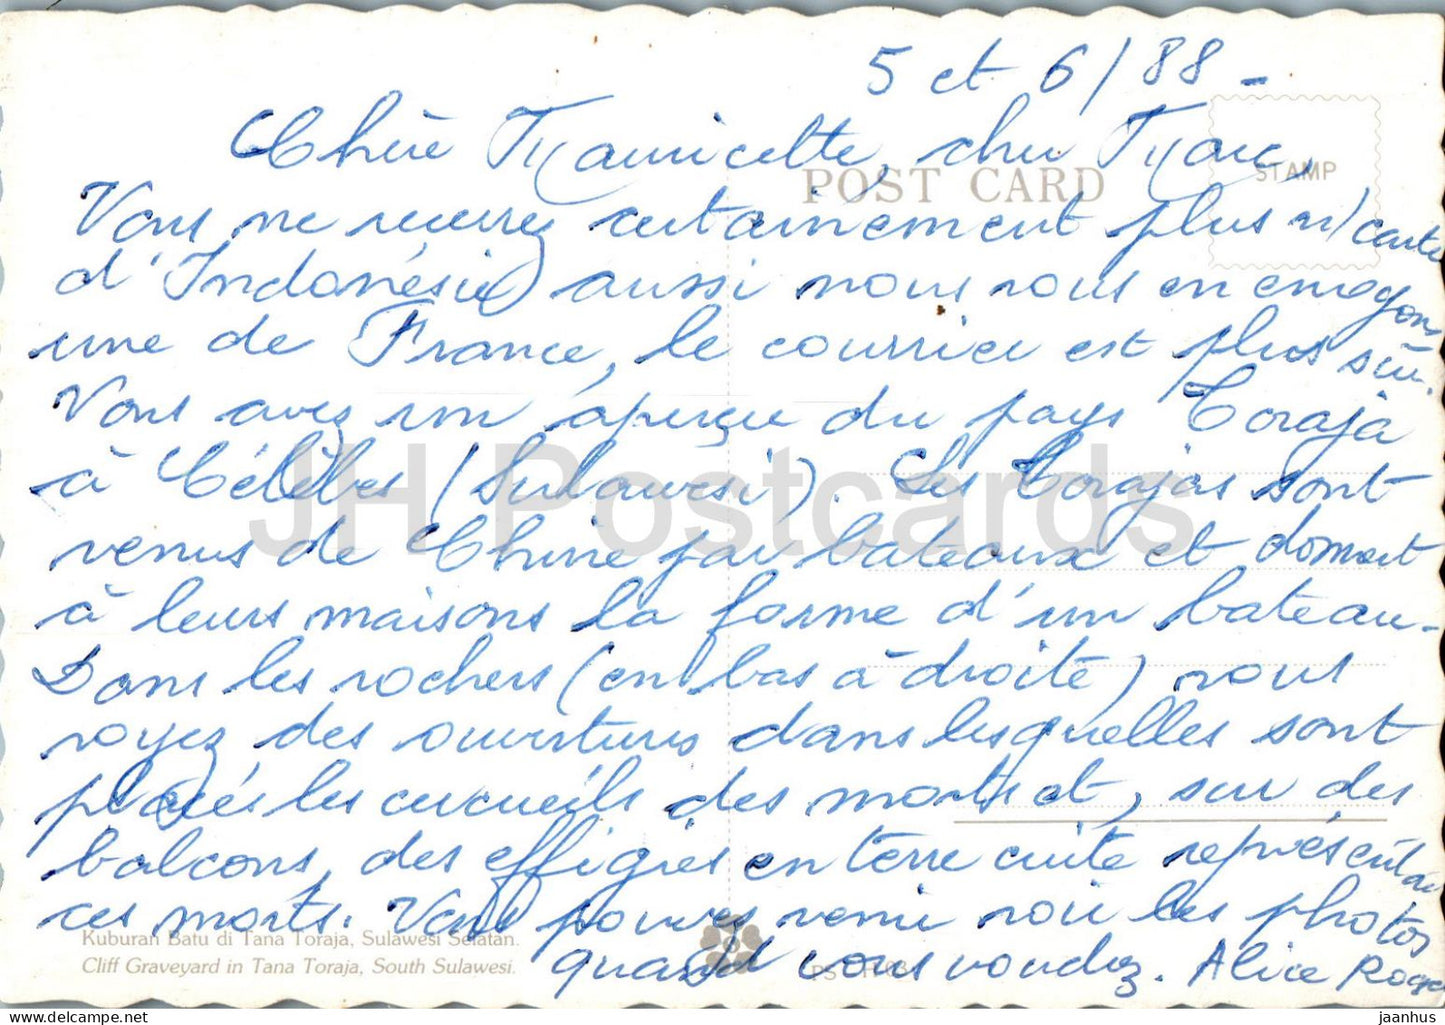 5 et 6/88 -
Chère Mauricette, cher Marc,
POST CARD
STAMP
Vous ne recevrez certainement plus n/ carte
d'Indonésie, aussi nous vous en envoyons
une de France, le courrier est plus sûr.
Vous avez un aperçu du pays Toraja
à Célèbes (Sulawesi). Les Torajas sont
venus de Chine par bateaux et donnent
à leurs maisons la forme d'un bateau.
Dans les rochers (en bas à droite) vous
voyez des ouvertures dans lesquelles sont
placés les cercueils des morts et, sur des
balcons, des effigies en terre cuite représentant
ces morts. Vous pouvez venir voir les photos
quand vous voudrez. Alice Roger
Kuburan Batu di Tana Toraja, Sulawesi Selatan.
Cliff Graveyard in Tana Toraja, South Sulawesi.
JH Postcards
jaanhus © delcampe.net